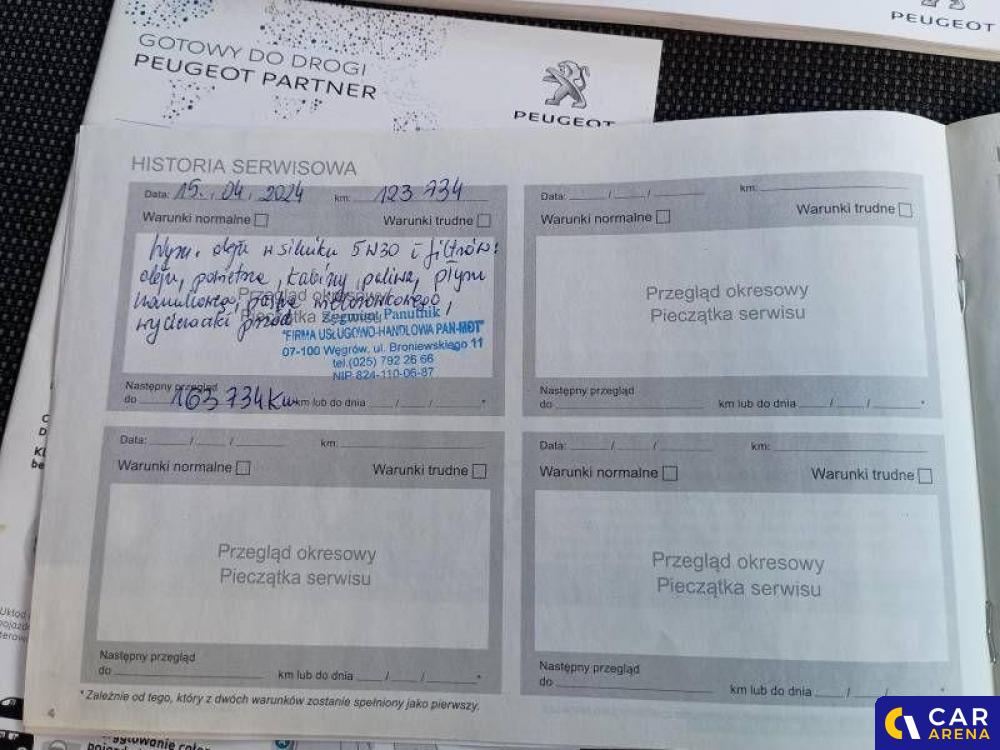 PEUGEOT
GOTOWY DO DROGI
PEUGEOT PARTNER
PEUGEOT
HISTORIA SERWISOWA
Data: 15. 04. 2024 km: 123 734
Warunki normalne Warunki trudne
Wym. oleju w silniku 5W30 i filtrów:
oleju, powietrza, kabiny, paliwa, płynu
hamulcowego,
wycieraczki przód
Przegląd okresowy
Pieczątka serwisu
Zygmunt Panufnik
"FIRMA USŁUGOWO-HANDLOWA PAN-MOT"
07-100 Węgrów, ul. Broniewskiego 11
tel.(025) 792 26 66
NIP 824-110-06-87
Następny przegląd
do 163 734 km km lub do dnia ___/___/___*
Data: ___/___/___ km:
Warunki normalne Warunki trudne
Przegląd okresowy
Pieczątka serwisu
Następny przegląd
do ___ km lub do dnia ___/___/___*
Data: ___/___/___ km:
Warunki normalne Warunki trudne
Przegląd okresowy
Pieczątka serwisu
Następny przegląd
do ___ km lub do dnia ___/___/___*
Data: ___/___/___ km:
Warunki normalne Warunki trudne
Przegląd okresowy
Pieczątka serwisu
Następny przegląd
do ___ km lub do dnia ___/___/___*
* Zależnie od tego, który z dwóch warunków zostanie spełniony jako pierwszy.
4
CAR
ARENA